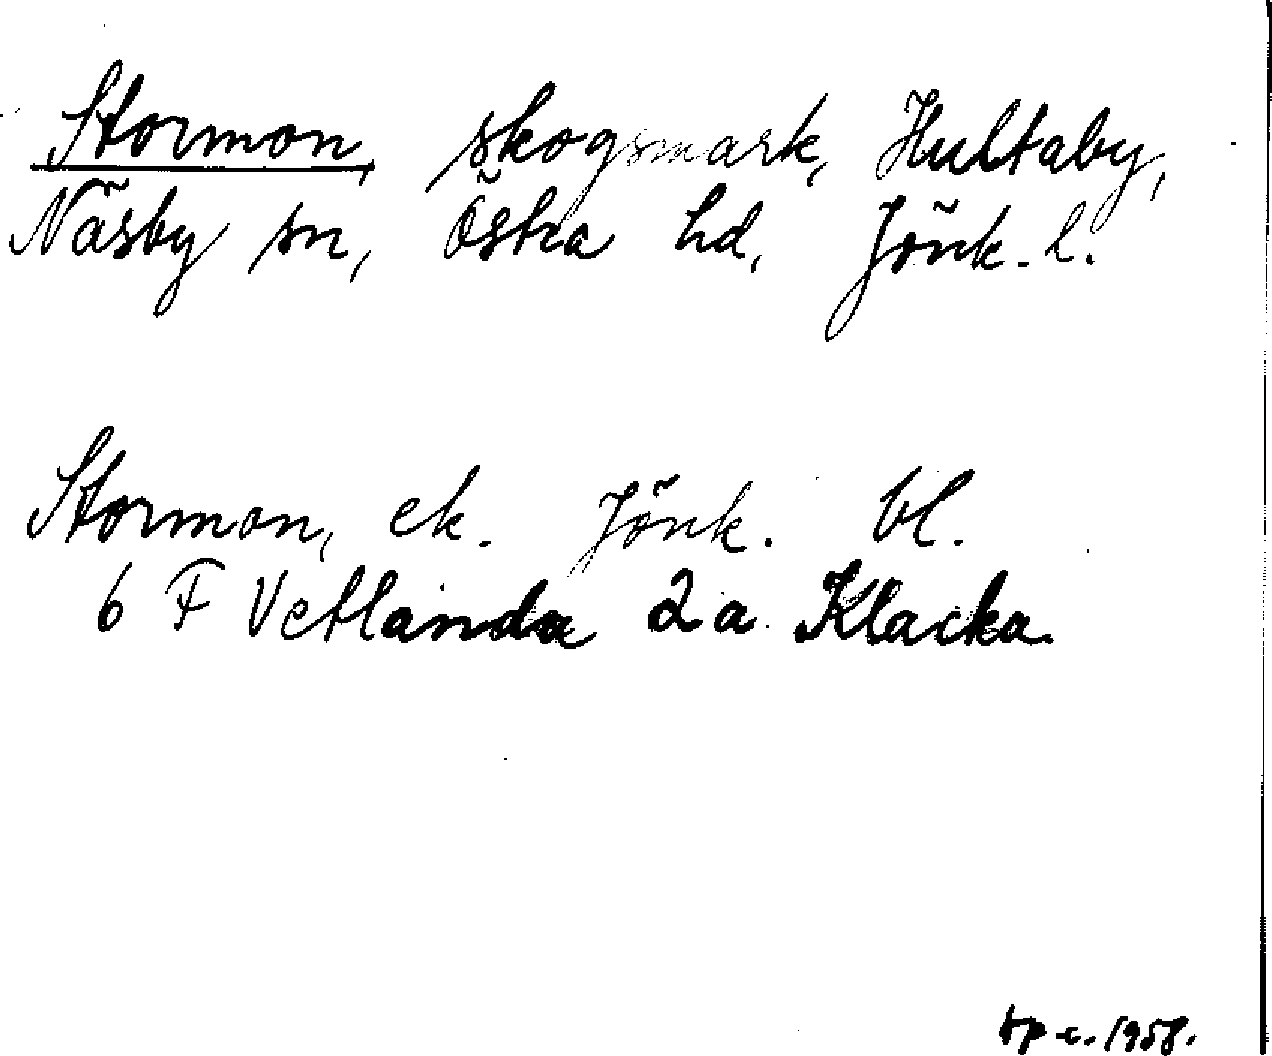 Stormon, skogsmark, Hultaby,
Näsby sn, Östra hd, Jönk. l.
Stormon, ek. Jönk. bl.
6 F Vetlanda 2a Klacka.
tp c. 1958.